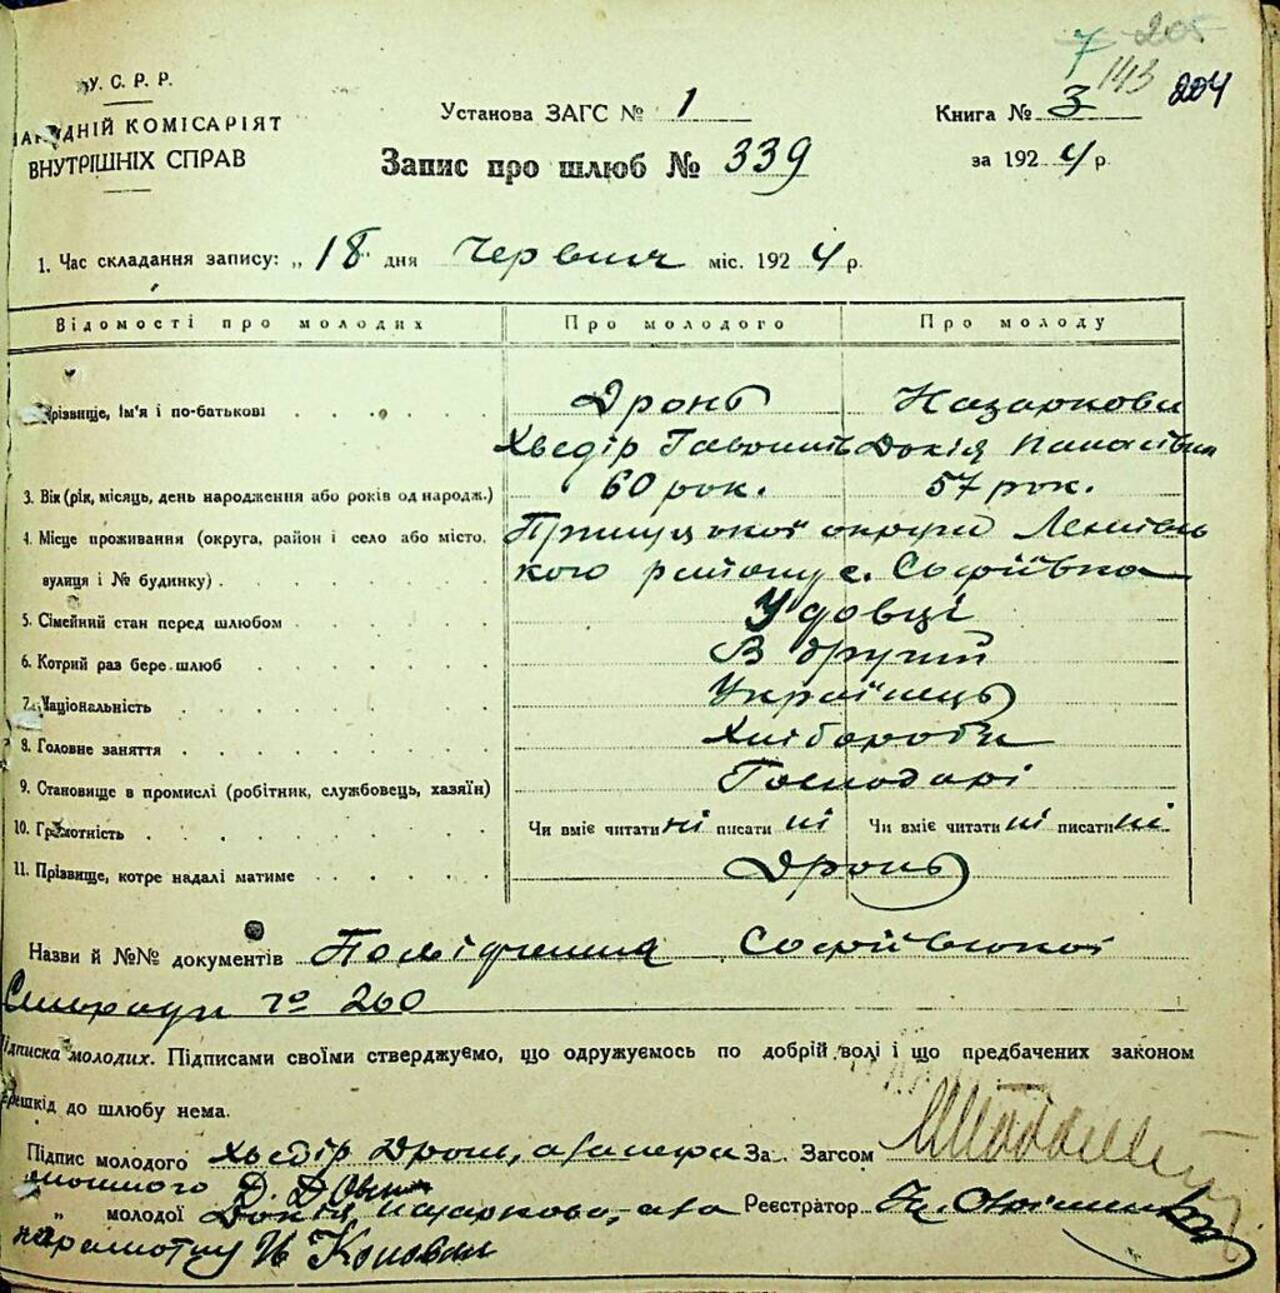 7 205
143 204
У. С. Р. Р.
НАРОДНІЙ КОМІСАРІЯТ
ВНУТРІШНІХ СПРАВ
Установа ЗАГС № 1
Книга № 3
Запис про шлюб № 339
за 1924 р.
1. Час складання запису: „18" дня Червня міс. 1924 р.
Відомості про молодих Про молодого Про молоду
Прізвище, ім'я і по-батькові Дронь Назаркова
Хведір Докія Панасівна
3. Вік (рік, місяць, день народження або років од народж.) 60 рок. 57 рок.
4. Місце проживання (округа, район і село або місто, Прилуцької округи
вулиця і № будинку) кого району с. Софіївка
5. Сімейний стан перед шлюбом Удовці
6. Котрий раз бере шлюб В другий
7. Національність Українець
8. Головне заняття Хлібороби
9. Становище в промислі (робітник, службовець, хазяїн) Господарі
10. Грамотність Чи вміє читати ні писати ні Чи вміє читати ні писати ні
11. Прізвище, котре надалі матиме Дронь
Назви й №№ документів Посвідчення Софіївської
Сільради № 260
Підписка молодих. Підписами своїми стверджуємо, що одружуємось по добрій волі і що предбачених законом
перешкід до шлюбу нема.
Підпис молодого Хведір Дронь, а за негра За. Загсом
мотного
„ молодої Докія Назаркова, а за Реєстратор
неграмотну